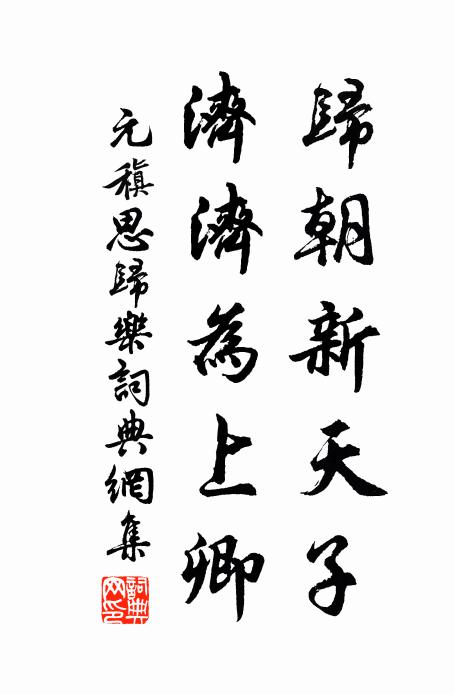 歸朝新天子
濟濟為上卿
元稹思歸樂詞典網集
詞典网印